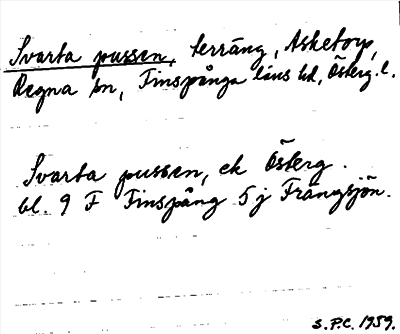 Svarta pussen, terräng, Asketorp,
Regna sn, Finspånga läns hd, Österg. l.
Svarta pussen, ek Österg.
bl. 9 F Finspång 5 j Frängsjön.
S.P.C. 1959.